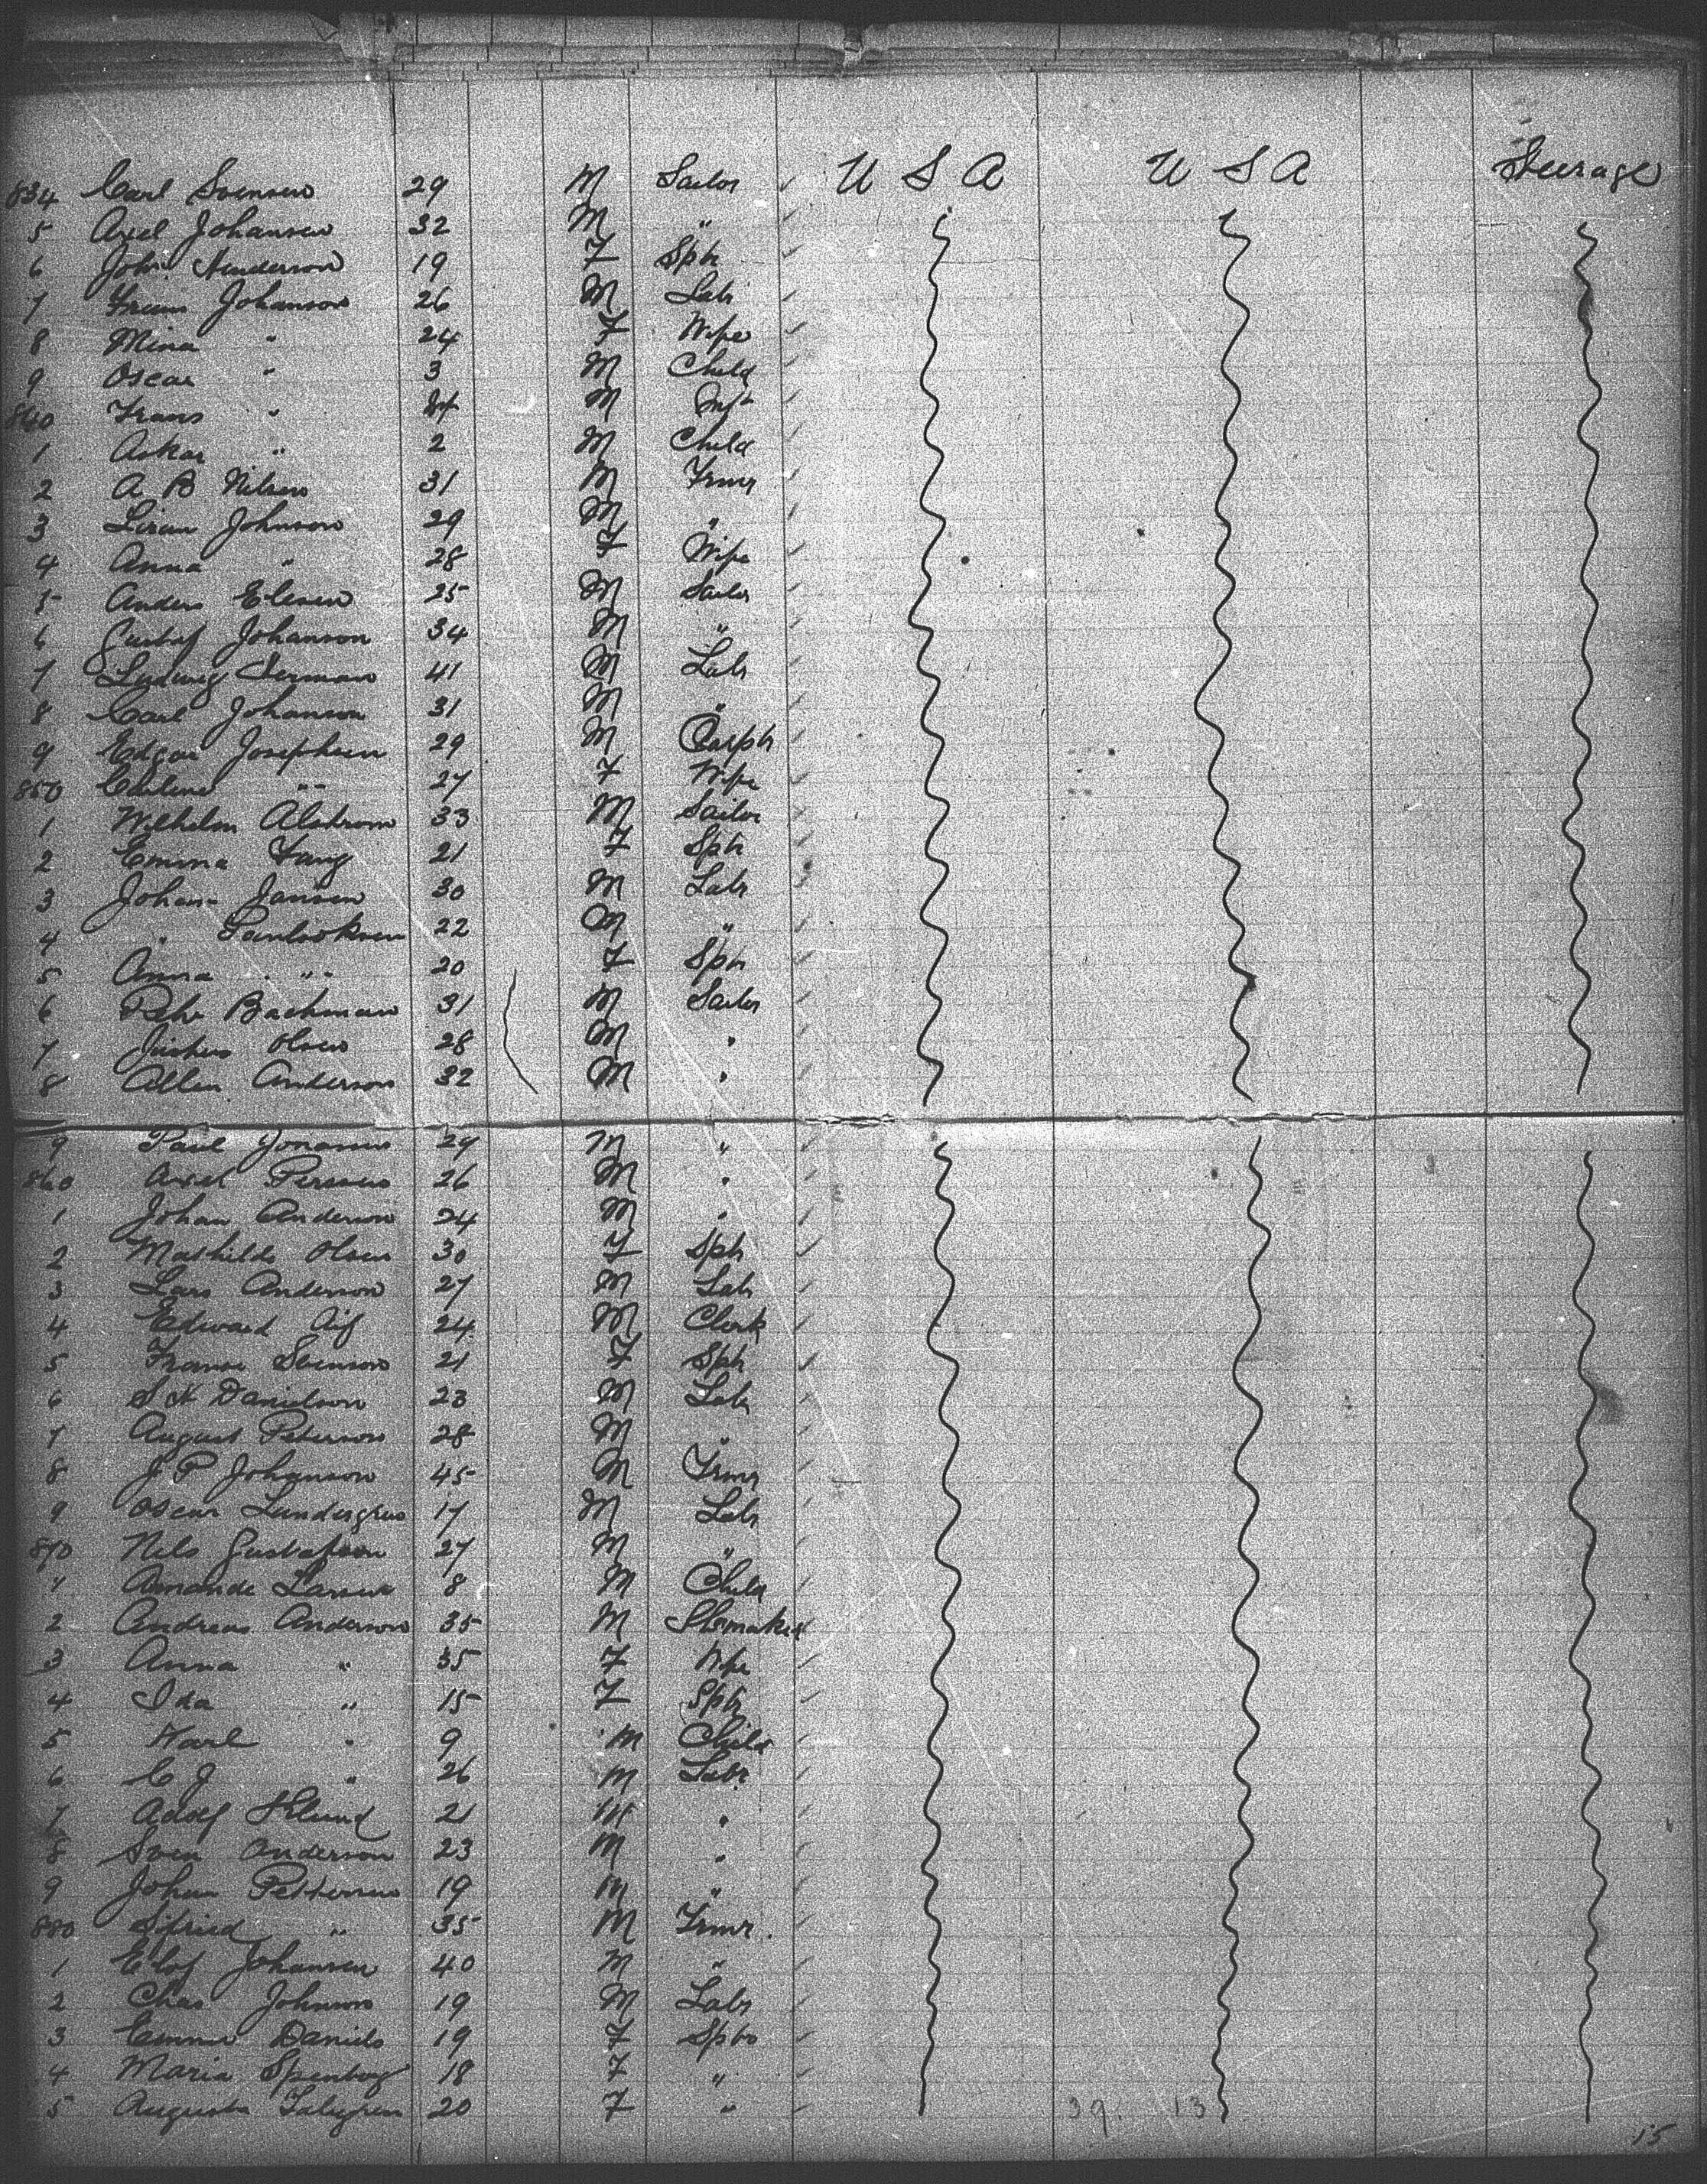 834 Carl Svensen 29 M Sailor U S A U S A Steerage
5 Axel Johansen 32 M "
6 John Henderson 19 F Sptr
7 Johanson 26 M Labr
8 Mina " 24 F Wife
9 Oscar " 3 M Child
840 Frans " M Inft
1 Askar " 2 M Child
2 A B Nilsen 31 M Frmr
3 Johnson 29 M "
4 Anna " 28 F Wife
5 Anders Elesen 25 M Sailor
6 Gustaf Johanson 34 M "
7 Ludwig 41 M Labr
8 Carl Johanson 31 M "
9 Edgar Josephsen 29 M Carptr
850 " 27 F Wife
1 Wilhelm Alstrom 33 M Sailor
2 Emma 21 F Sptr
3 Johan Jansen 30 M Labr
4 " 22 M "
5 Anna " 20 F Sptr
6 Bachman 31 M Sailor
7 Olsen 28 M "
8 Allen Anderson 32 M "
9 Paul 29 M "
860 Axel Persson 26 M "
1 Johan Anderson 24 M "
2 Mathilde Olsen 30 F Sptr
3 Lars Anderson 27 M Labr
4 Edward 24 M Clerk
5 Svenson 21 F Sptr
6 Danielson 23 M Labr
7 August Peterson 28 M "
8 J P Johanson 45 M Frmr
9 Oscar Lundegren 17 M Labr
870 Nels Gustafson 27 M "
1 Amanda Larsen 8 M Child
2 Andreas Anderson 35 M Shomaker
3 Anna " 35 F Wife
4 Ida " 15 F Sptr
5 Karl " 9 M Child
6 C J " 26 M Labr
7 Adolf 21 M "
8 Sven Anderson 23 M "
9 Johan Petterson 19 M "
880 " 35 M Frmr.
1 Elof Johansen 40 M "
2 Chas Johnson 19 M Labr
3 Emma Daniels 19 F Sptr
4 Maria 18 F "
5 Augusta 20 F "
39. 13
15